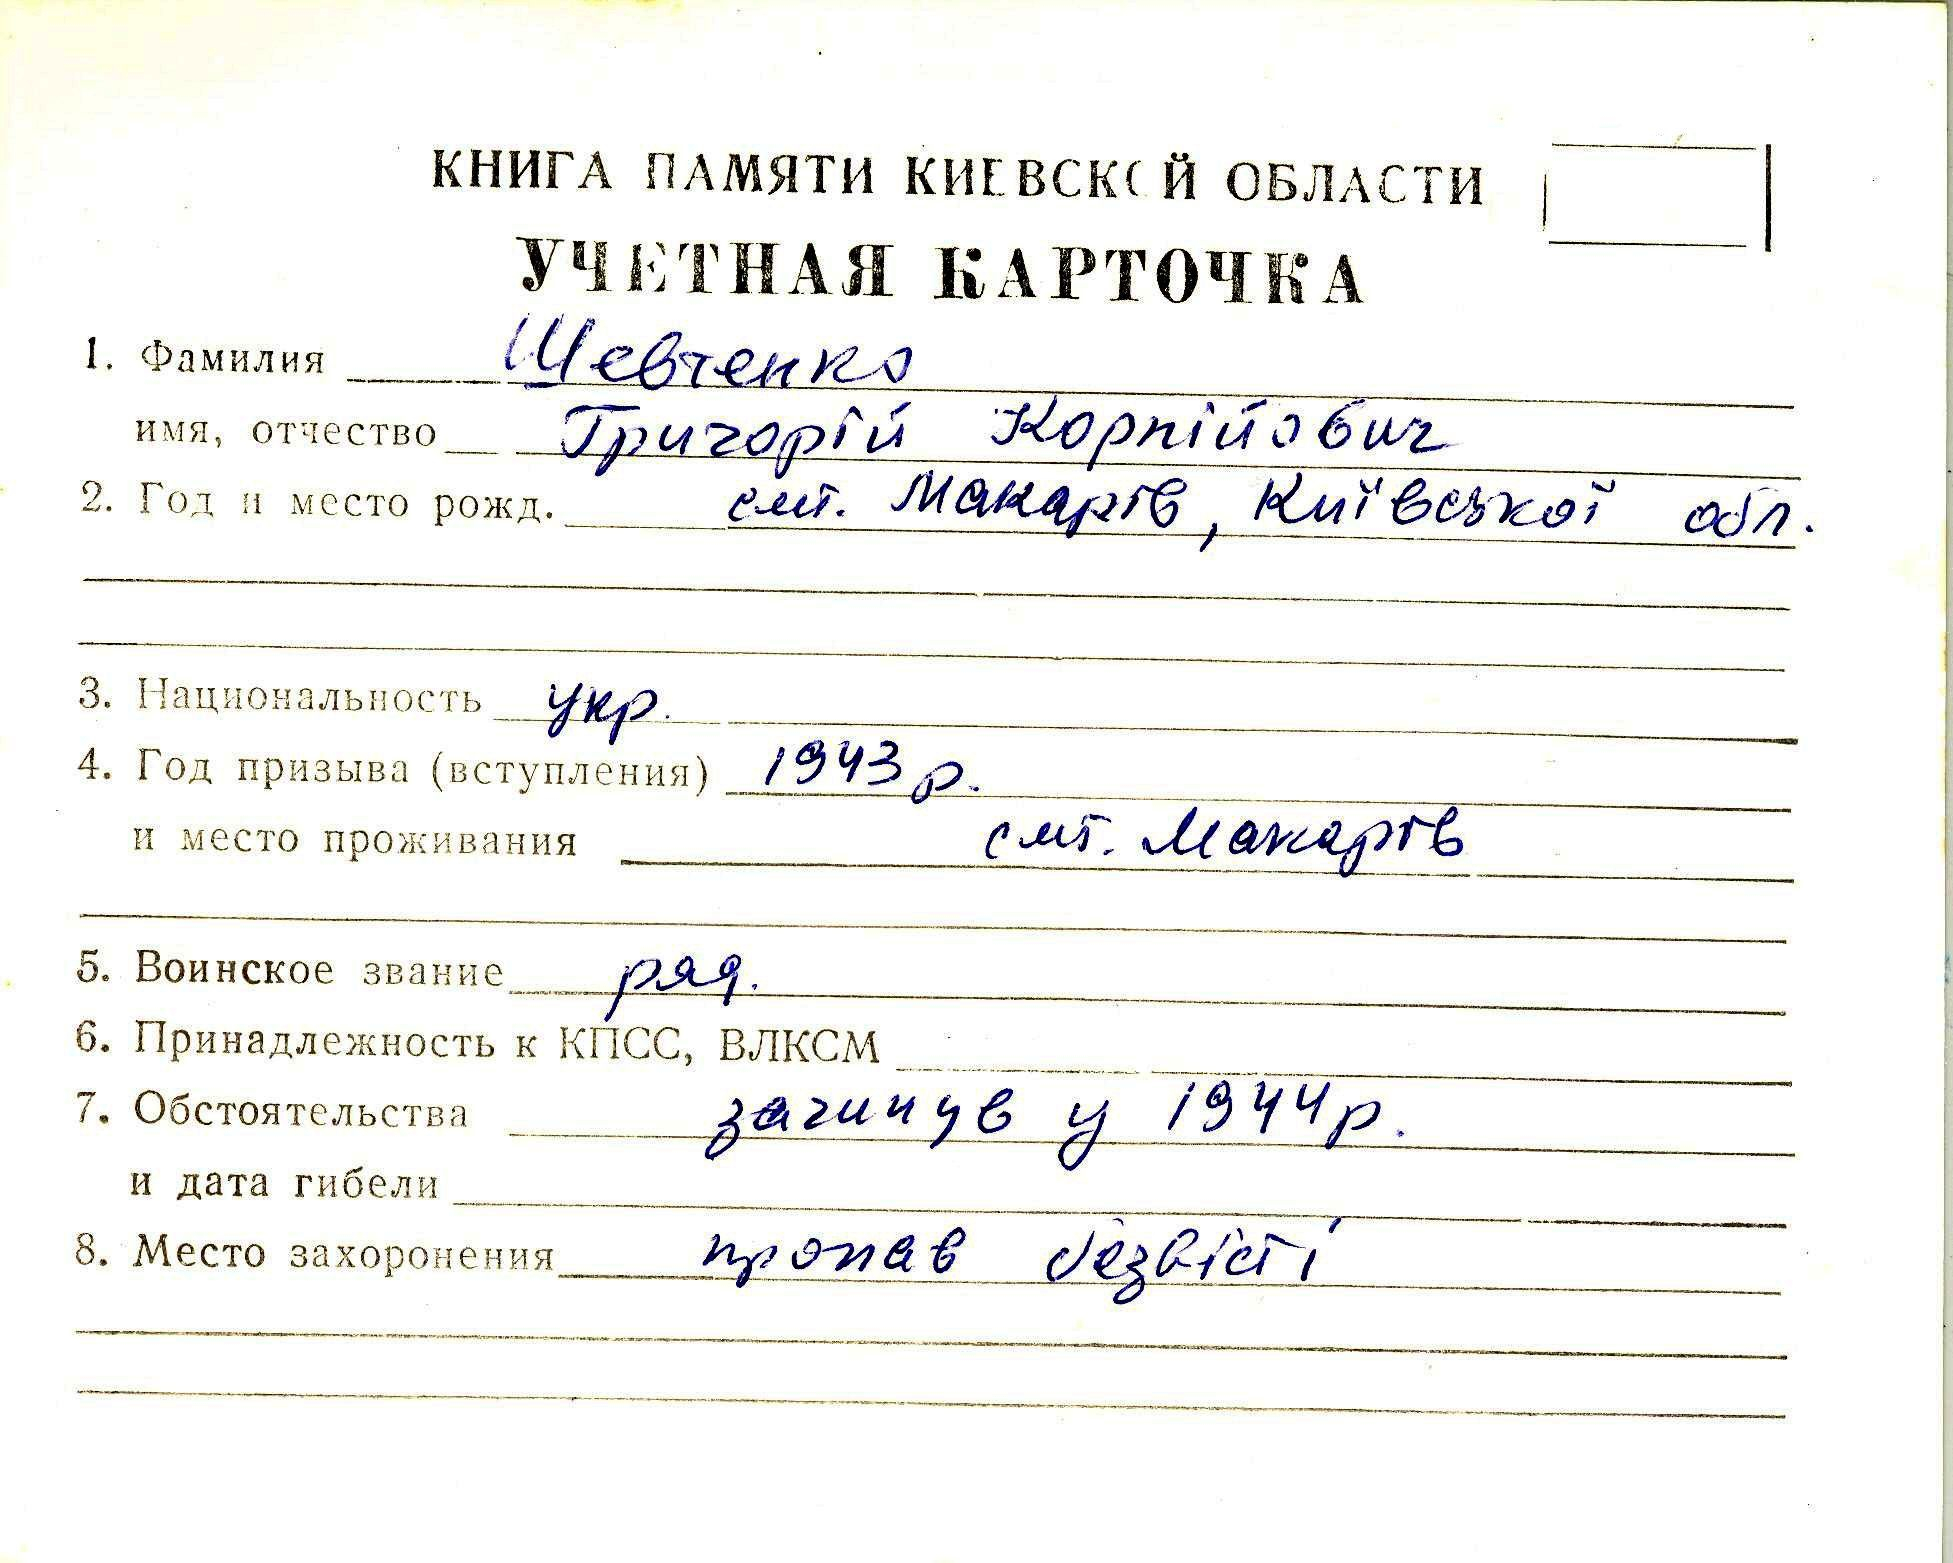 КНИГА ПАМЯТИ КИЕВСКОЙ ОБЛАСТИ
УЧЕТНАЯ КАРТОЧКА
1. Фамилия Шевченко
имя, отчество Григорій Корпійович
2. Год и место рожд. смт. Макарів, Київської обл.
3. Национальность укр.
4. Год призыва (вступления) 1943 р.
и место проживания смт. Макарів
5. Воинское звание ряд.
6. Принадлежность к КПСС, ВЛКСМ
7. Обстоятельства загинув у 1944 р.
и дата гибели
8. Место захоронения пропав безвісті